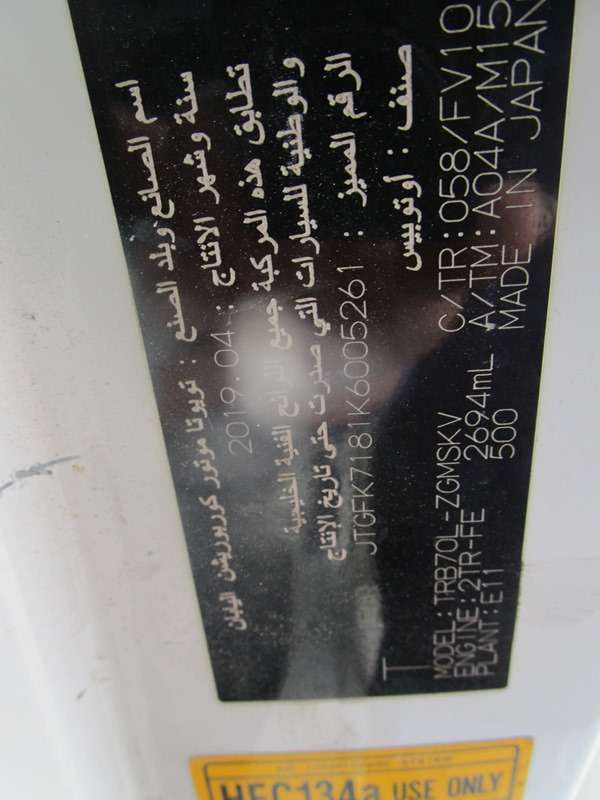 اسم الصانع وبلد الصنع : تويوتا موتور كوربوريشن اليابان
سنة وشهر الانتاج : 2019.04
تطابق هذه المركبة جميع اللوائح الفنية الخليجية
والوطنية للسيارات التي صدرت حتى تاريخ الإنتاج
الرقم المميز : JTGFK7181K6005261
صنف : أوتوبيس
T
MODEL: TRB70L-ZGMSKV C/TR: 058/FV10
ENGINE: 2TR-FE 2694mL A/TM: A04A/M15
PLANT: E11 500 MADE IN JAPAN
HFC134a USE ONLY